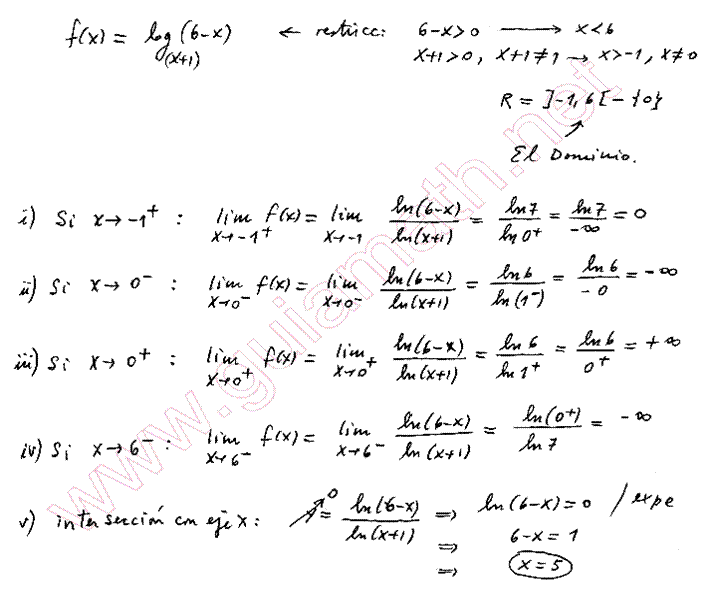 f(x) = log(x+1) (6-x) ← restricc: 6-x>0 → x<6
x+1>0, x+1≠1 → x>-1, x≠0
R = ]-1, 6[ - {0}
El Dominio.
i) Si x→-1⁺ : lim x→-1⁺ f(x) = lim x→-1 ln(6-x)/ln(x+1) = ln7/ln0⁺ = ln7/-∞ = 0
ii) Si x→0⁻ : lim x→0⁻ f(x) = lim x→0⁻ ln(6-x)/ln(x+1) = ln6/ln(1⁻) = ln6/-0 = -∞
iii) Si x→0⁺ : lim x→0⁺ f(x) = lim x→0⁺ ln(6-x)/ln(x+1) = ln6/ln1⁺ = ln6/0⁺ = +∞
iv) Si x→6⁻ : lim x→6⁻ f(x) = lim x→6⁻ ln(6-x)/ln(x+1) = ln(0⁺)/ln7 = -∞
v) intersección con eje x: 0 = ln(6-x)/ln(x+1) ⇒ ln(6-x)=0 /expe
⇒ 6-x=1
⇒ x=5
www.guiamath.net